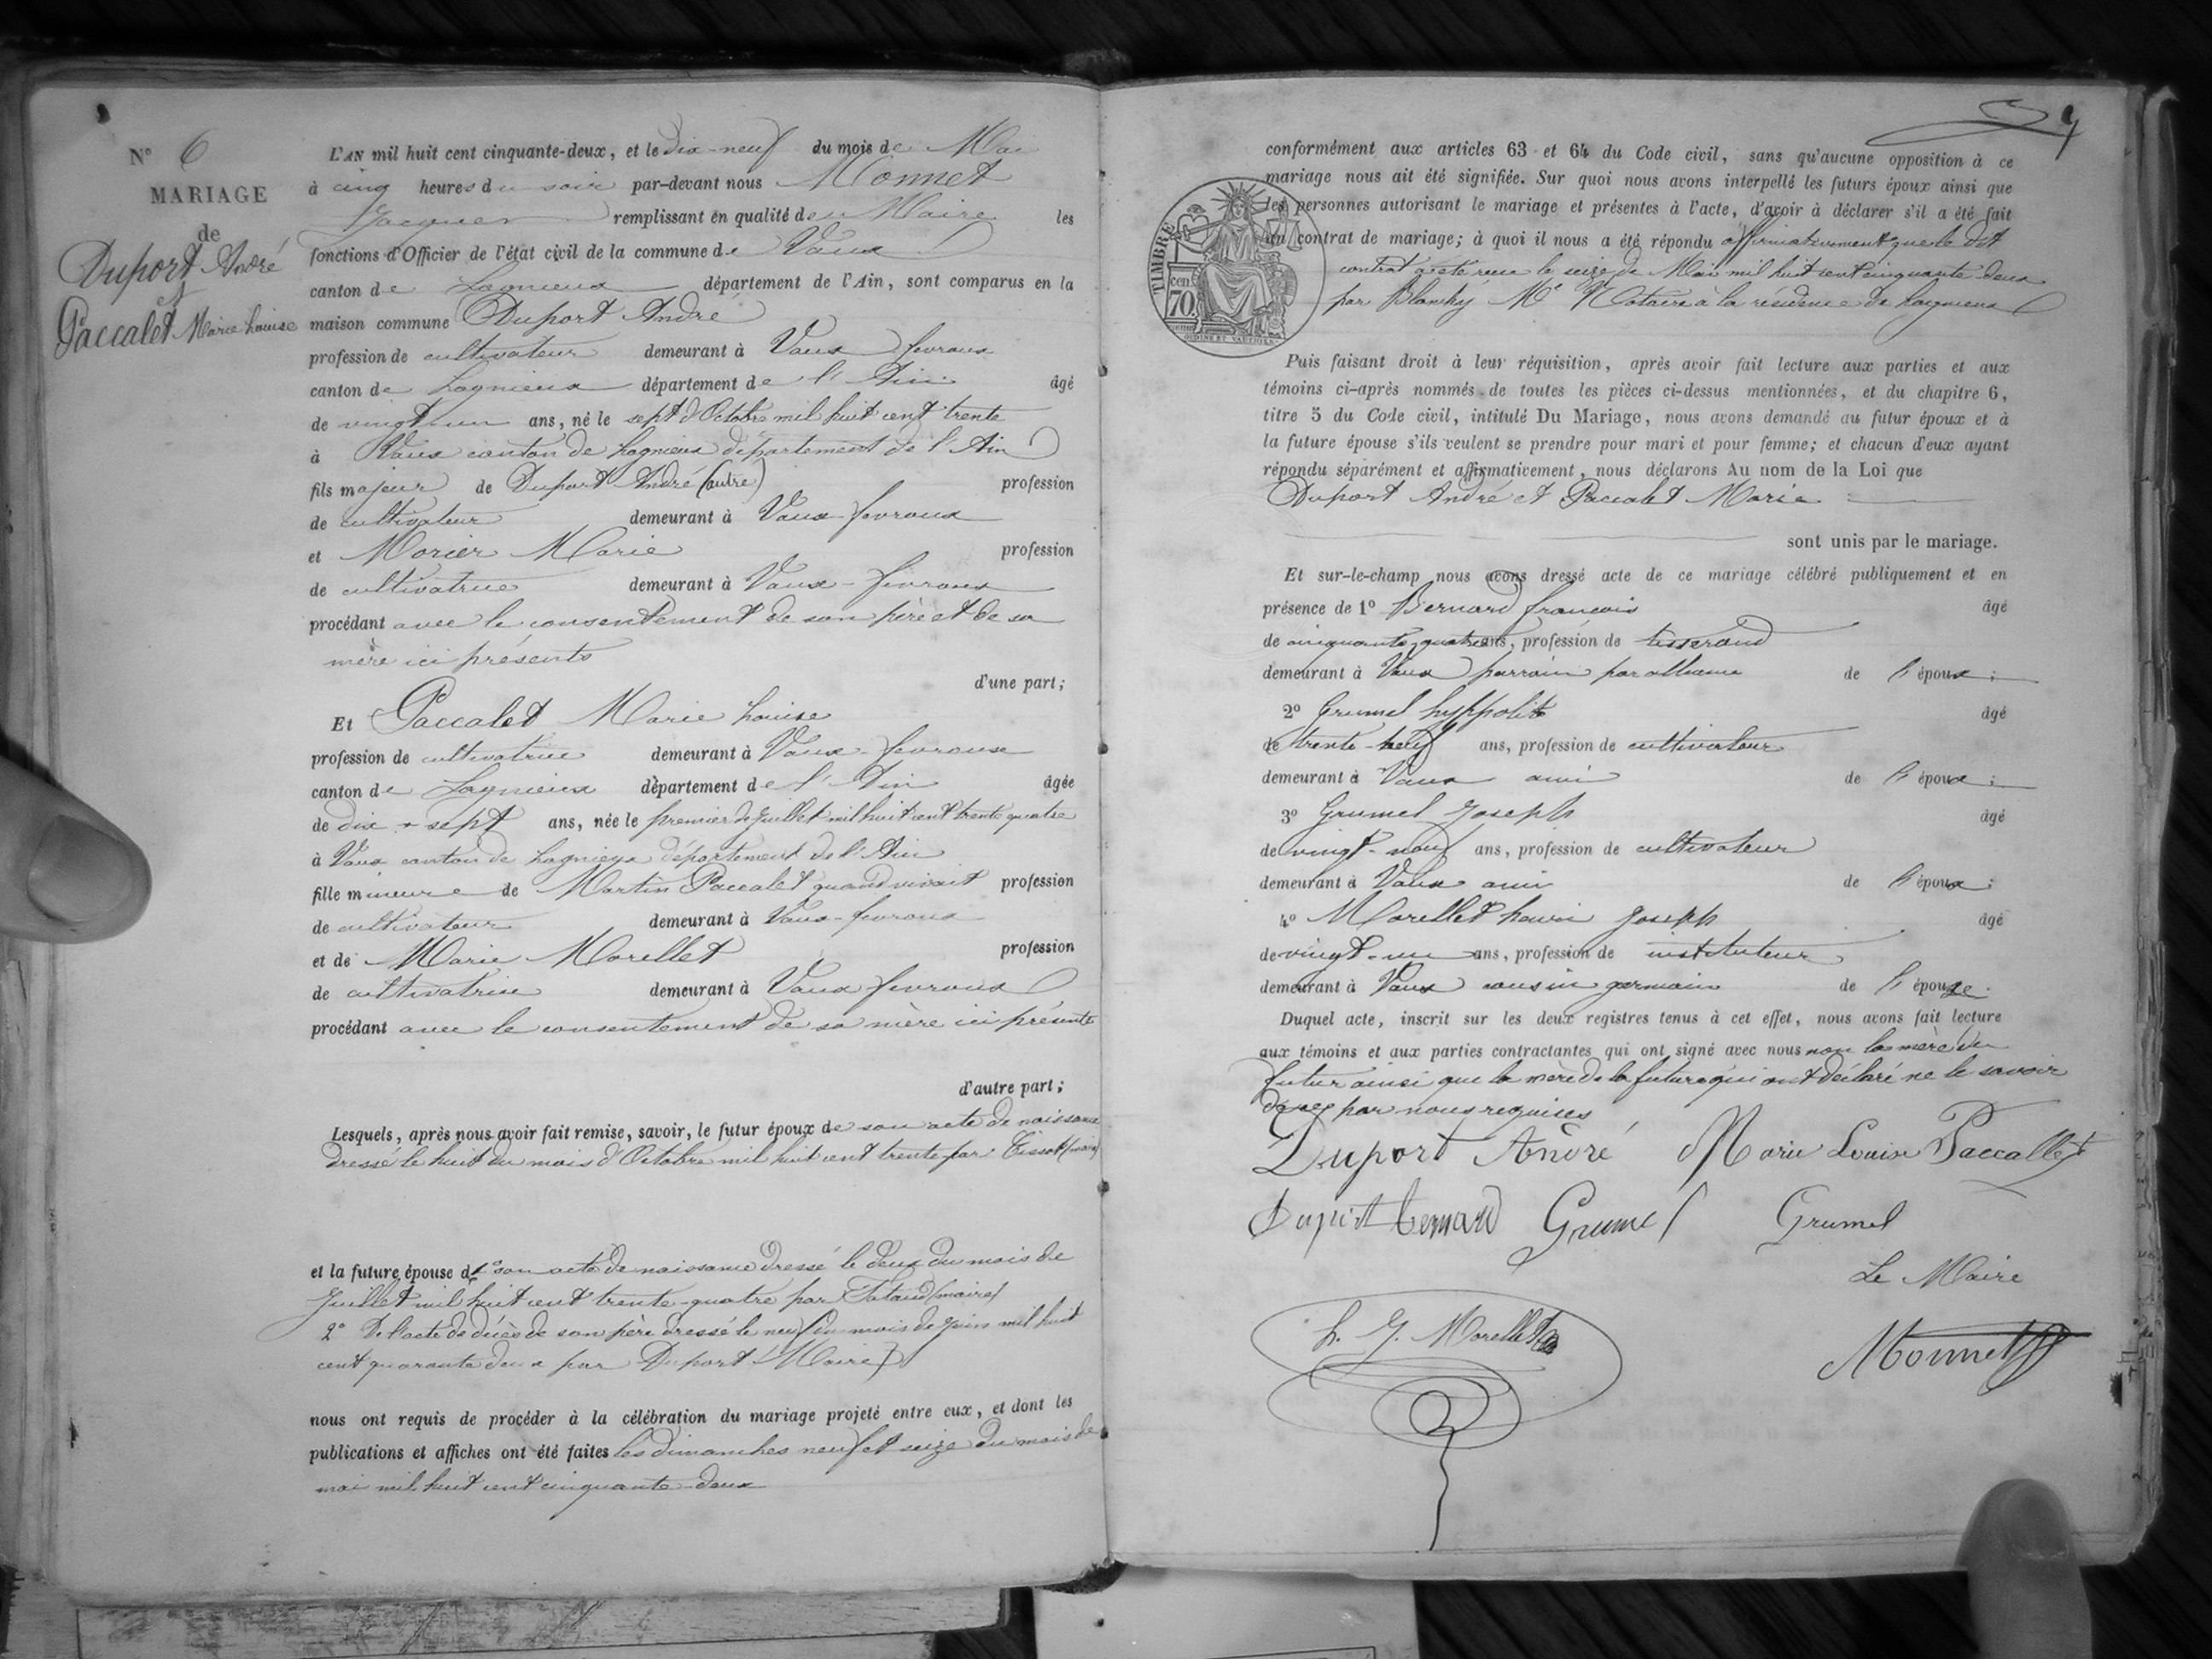 N° 6
MARIAGE
de
Duport André
et
Paccalet Marie Louise
L'AN mil huit cent cinquante-deux, et le dix-neuf du mois de Mai
à cinq heures du soir par-devant nous Monnet
Jacques remplissant en qualité de Maire les
fonctions d'Officier de l'état civil de la commune de Vaux
canton de Lagnieux département de l'Ain, sont comparus en la
maison commune Duport André
profession de cultivateur demeurant à Vaux fevroux
canton de Lagnieux département de l'Ain âgé
de vingt un ans, né le sept d'Octobre mil huit cent trente
à Vaux canton de Lagnieux département de l'Ain
fils majeur de Duport André (autre) profession
de cultivateur demeurant à Vaux-fevroux
et Morier Marie profession
de cultivatrice demeurant à Vaux-fevroux
procédant avec le consentement de son père et de sa
mère ici présents
d'une part;
Et Paccalet Marie Louise
profession de cultivatrice demeurant à Vaux-fevroux
canton de Lagnieux département de l'Ain âgée
de dix-sept ans, née le premier de Juillet mil huit cent trente quatre
à Vaux canton de Lagnieux département de l'Ain
fille mineure de Martin Paccalet quand vivait profession
de cultivateur demeurant à Vaux-fevroux
et de Marie Morellet profession
de cultivatrice demeurant à Vaux fevroux
procédant avec le consentement de sa mère ici présente
d'autre part;
Lesquels, après nous avoir fait remise, savoir, le futur époux de son acte de naissance
dressé le huit du mois d'Octobre mil huit cent trente par Tissot (maire)
et la future épouse de 1° son acte de naissance dressé le deux du mois de
Juillet mil huit cent trente-quatre par (maire)
2° De l'acte de décès de son père dressé le neuf du mois de Juin mil huit
cent quarante deux par Duport (Maire)
nous ont requis de procéder à la célébration du mariage projeté entre eux, et dont les
publications et affiches ont été faites les dimanches neuf et seize du mois de
mai mil huit cent cinquante-deux
conformément aux articles 63 et 64 du Code civil, sans qu'aucune opposition à ce
mariage nous ait été signifiée. Sur quoi nous avons interpellé les futurs époux ainsi que
les personnes autorisant le mariage et présentes à l'acte, d'avoir à déclarer s'il a été fait
un contrat de mariage; à quoi il nous a été répondu affirmativement que le dit
contrat a été reçu le seize de Mai mil huit cent cinquante deux
par Blanchy Me Notaire à la résidence de Lagnieux
TIMBRE
cen.
70
Puis faisant droit à leur réquisition, après avoir fait lecture aux parties et aux
témoins ci-après nommés de toutes les pièces ci-dessus mentionnées, et du chapitre 6,
titre 5 du Code civil, intitulé Du Mariage, nous avons demandé au futur époux et à
la future épouse s'ils veulent se prendre pour mari et pour femme; et chacun d'eux ayant
répondu séparément et affirmativement, nous déclarons Au nom de la Loi que
Duport André et Paccalet Marie
sont unis par le mariage.
Et sur-le-champ nous avons dressé acte de ce mariage célébré publiquement et en
présence de 1° Bernard françois âgé
de cinquante-quatre ans, profession de tisserand
demeurant à Vaux parrain par alliance de l'époux;
2° Grumel hyppolite âgé
de trente-neuf ans, profession de cultivateur
demeurant à Vaux ami de l'époux;
3° Grumel Joseph âgé
de vingt-neuf ans, profession de cultivateur
demeurant à Vaux ami de l'époux;
4° Morellet Louis Joseph âgé
de vingt-un ans, profession de instituteur
demeurant à Vaux cousin germain de l'épouse.
Duquel acte, inscrit sur les deux registres tenus à cet effet, nous avons fait lecture
aux témoins et aux parties contractantes qui ont signé avec nous non la mère du
futur ainsi que la mère de la future qui ont déclaré ne le savoir
de ce par nous requises
Duport André Marie Louise Paccallet
Duport bernard Grumel Grumel
Le Maire
L. J. Morellet
Monnet